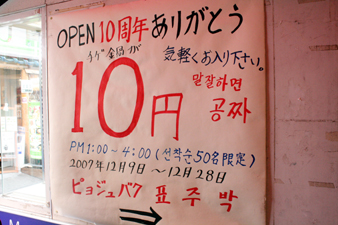 OPEN 10周年ありがとう
気軽くお入り下さい。
10円
말잘하면
공짜
PM 1:00~4:00 (선착순50名限定)
2007年12月9日 ~12月28日
ピョジュバク 표주박